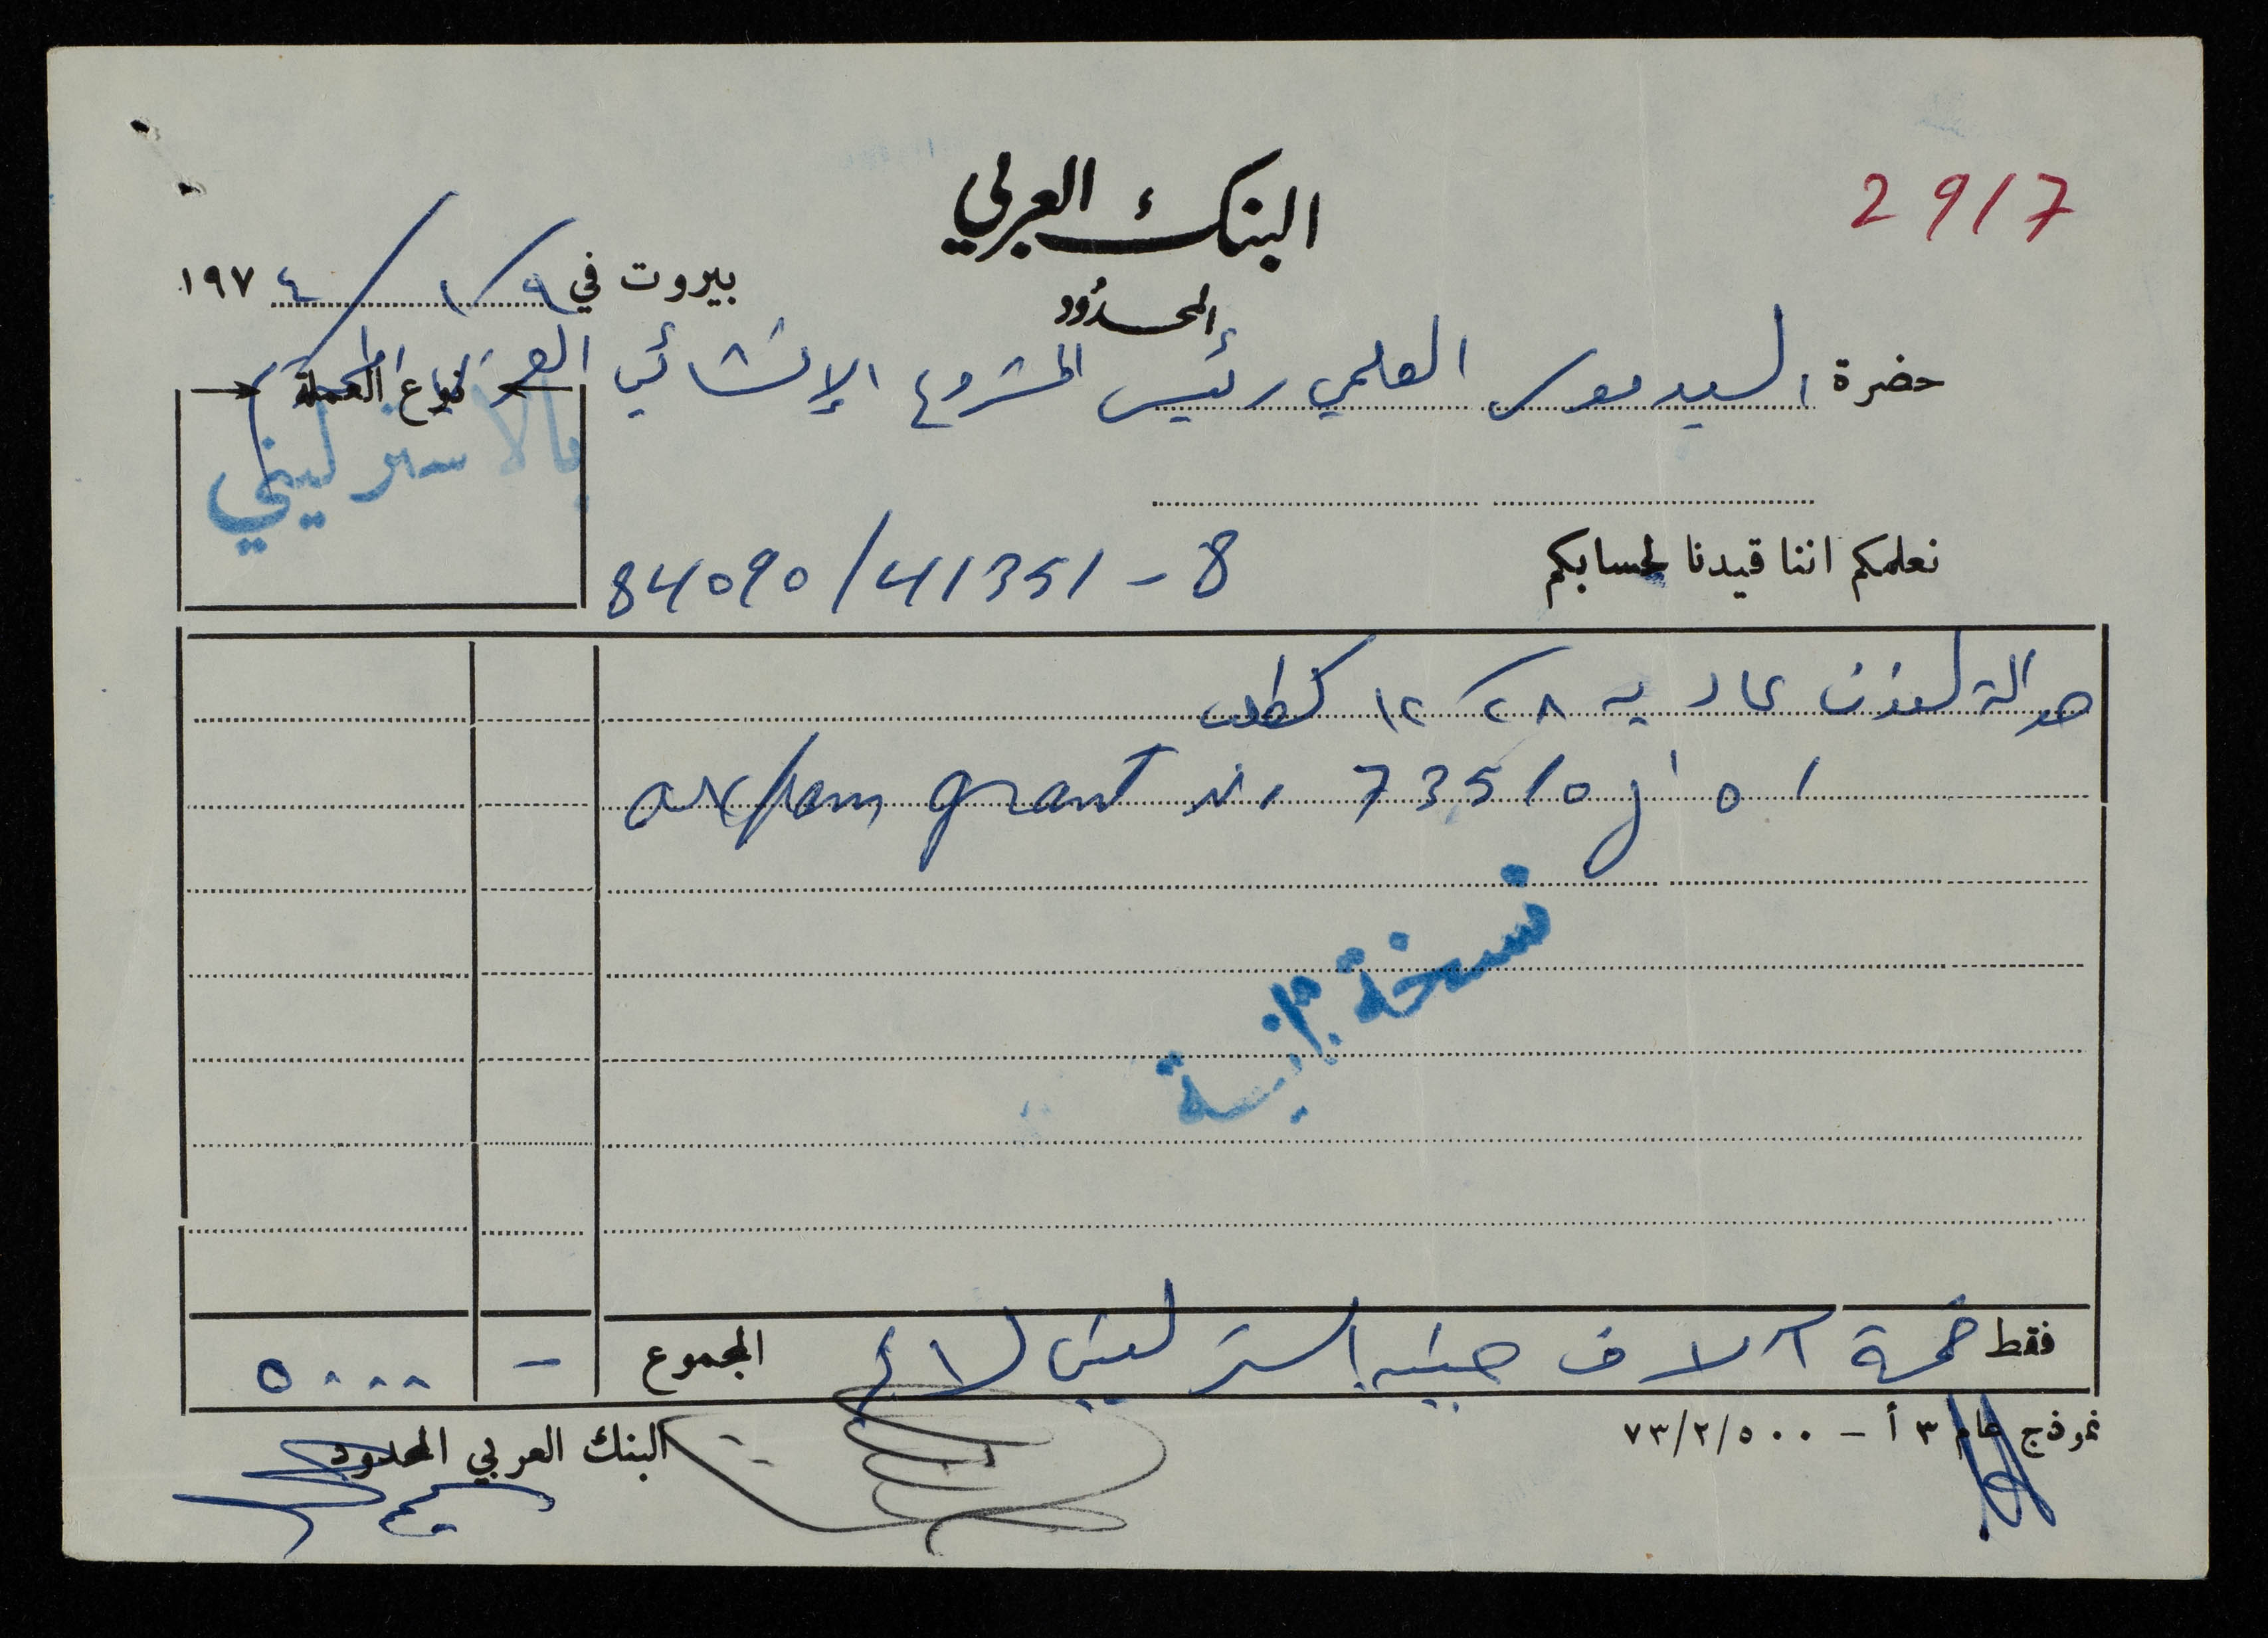 2917
البنك العربي
المحدود
بيروت في ٩/١/١٩٧٤
حضرة السيد موسى العلمي رئيس المشروع الإنشائي العربي المحترم
نوع العملة
بالاسترليني
نعلمكم اننا قيدنا لحسابكم 84090/41351-8
حوالة لندن عادية ٢٨/١٢ كطلب
oxfam grant
نسخة ثانية
فقط خمسة آلاف جنيه استرليني لا غير المجموع - ٥٠٠٠
نموذج عام ٣ أ - ٧٣/٢/٥٠٠
البنك العربي المحدود